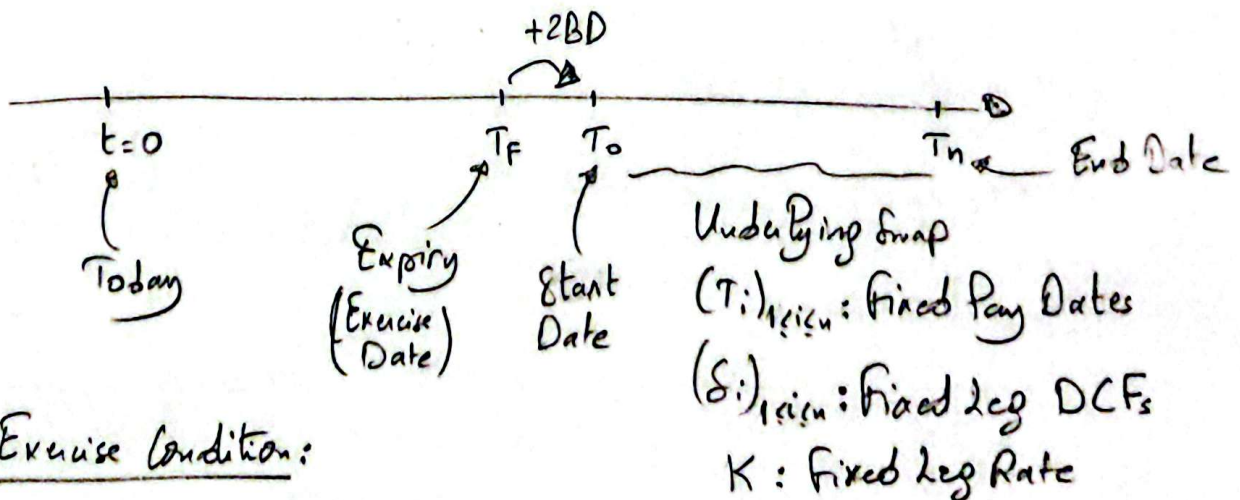 +2BD
t=0 T_F T_0 T_n End Date
Today
Expiry
(Exercise
Date)
Start
Date
Underlying Swap
(T_i)_{1≤i≤n} : Fixed Pay Dates
(δ_i)_{1≤i≤n} : Fixed Leg DCFs
K : Fixed Leg Rate
Exercise Condition: